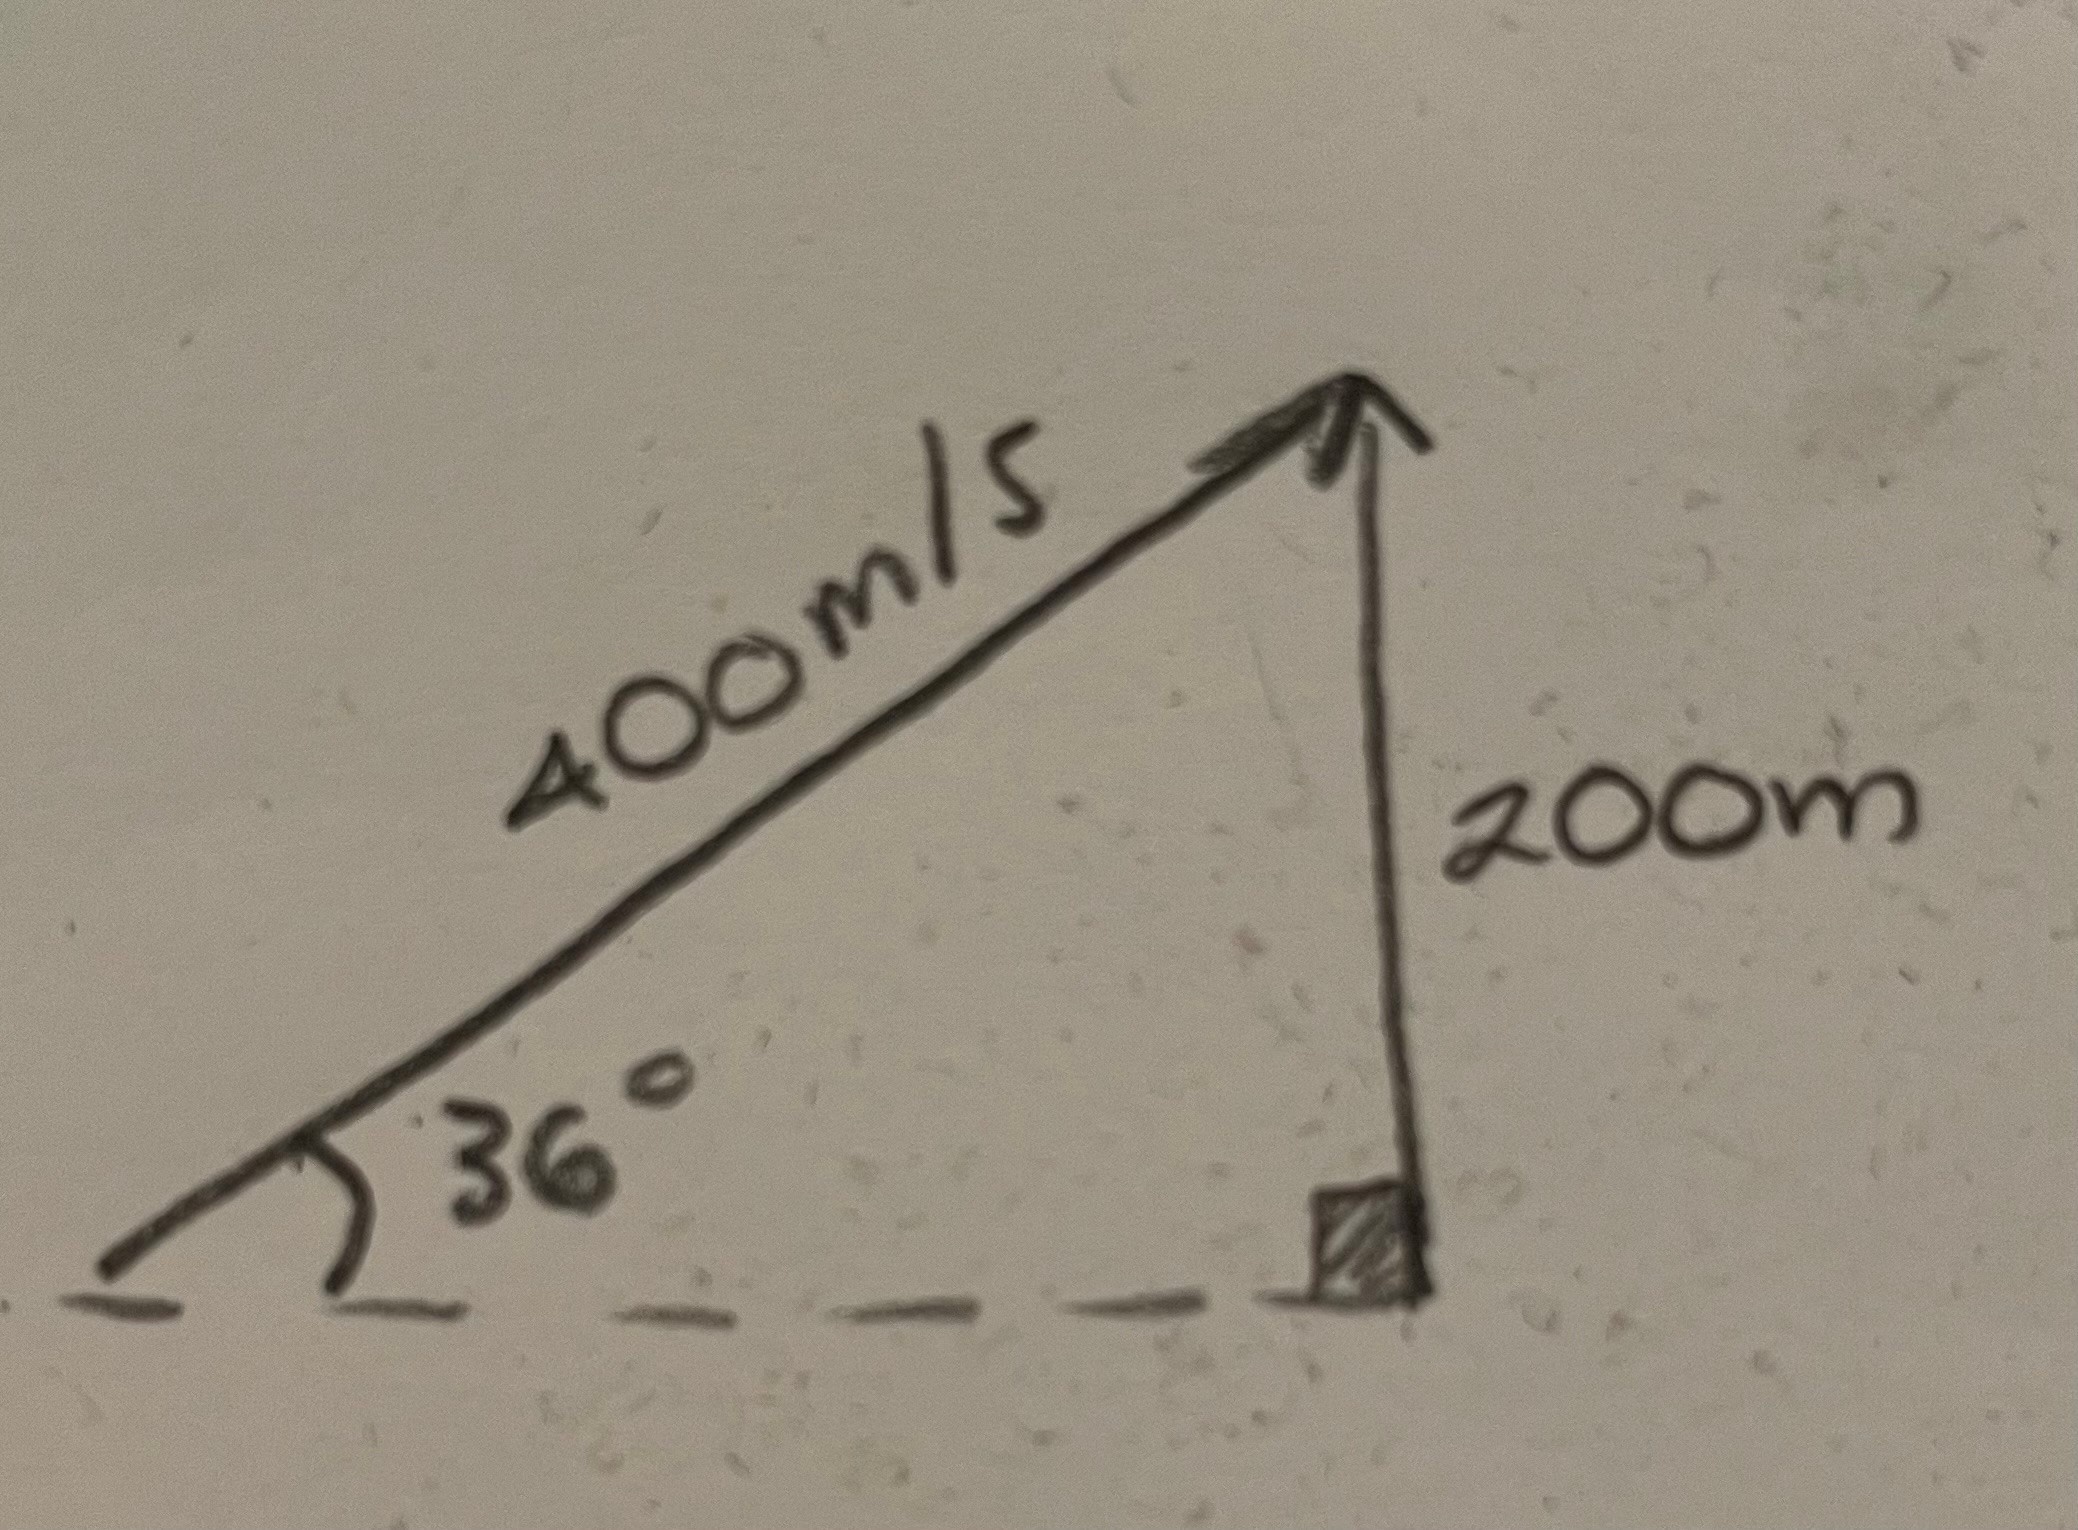 400m/s
200m
36°